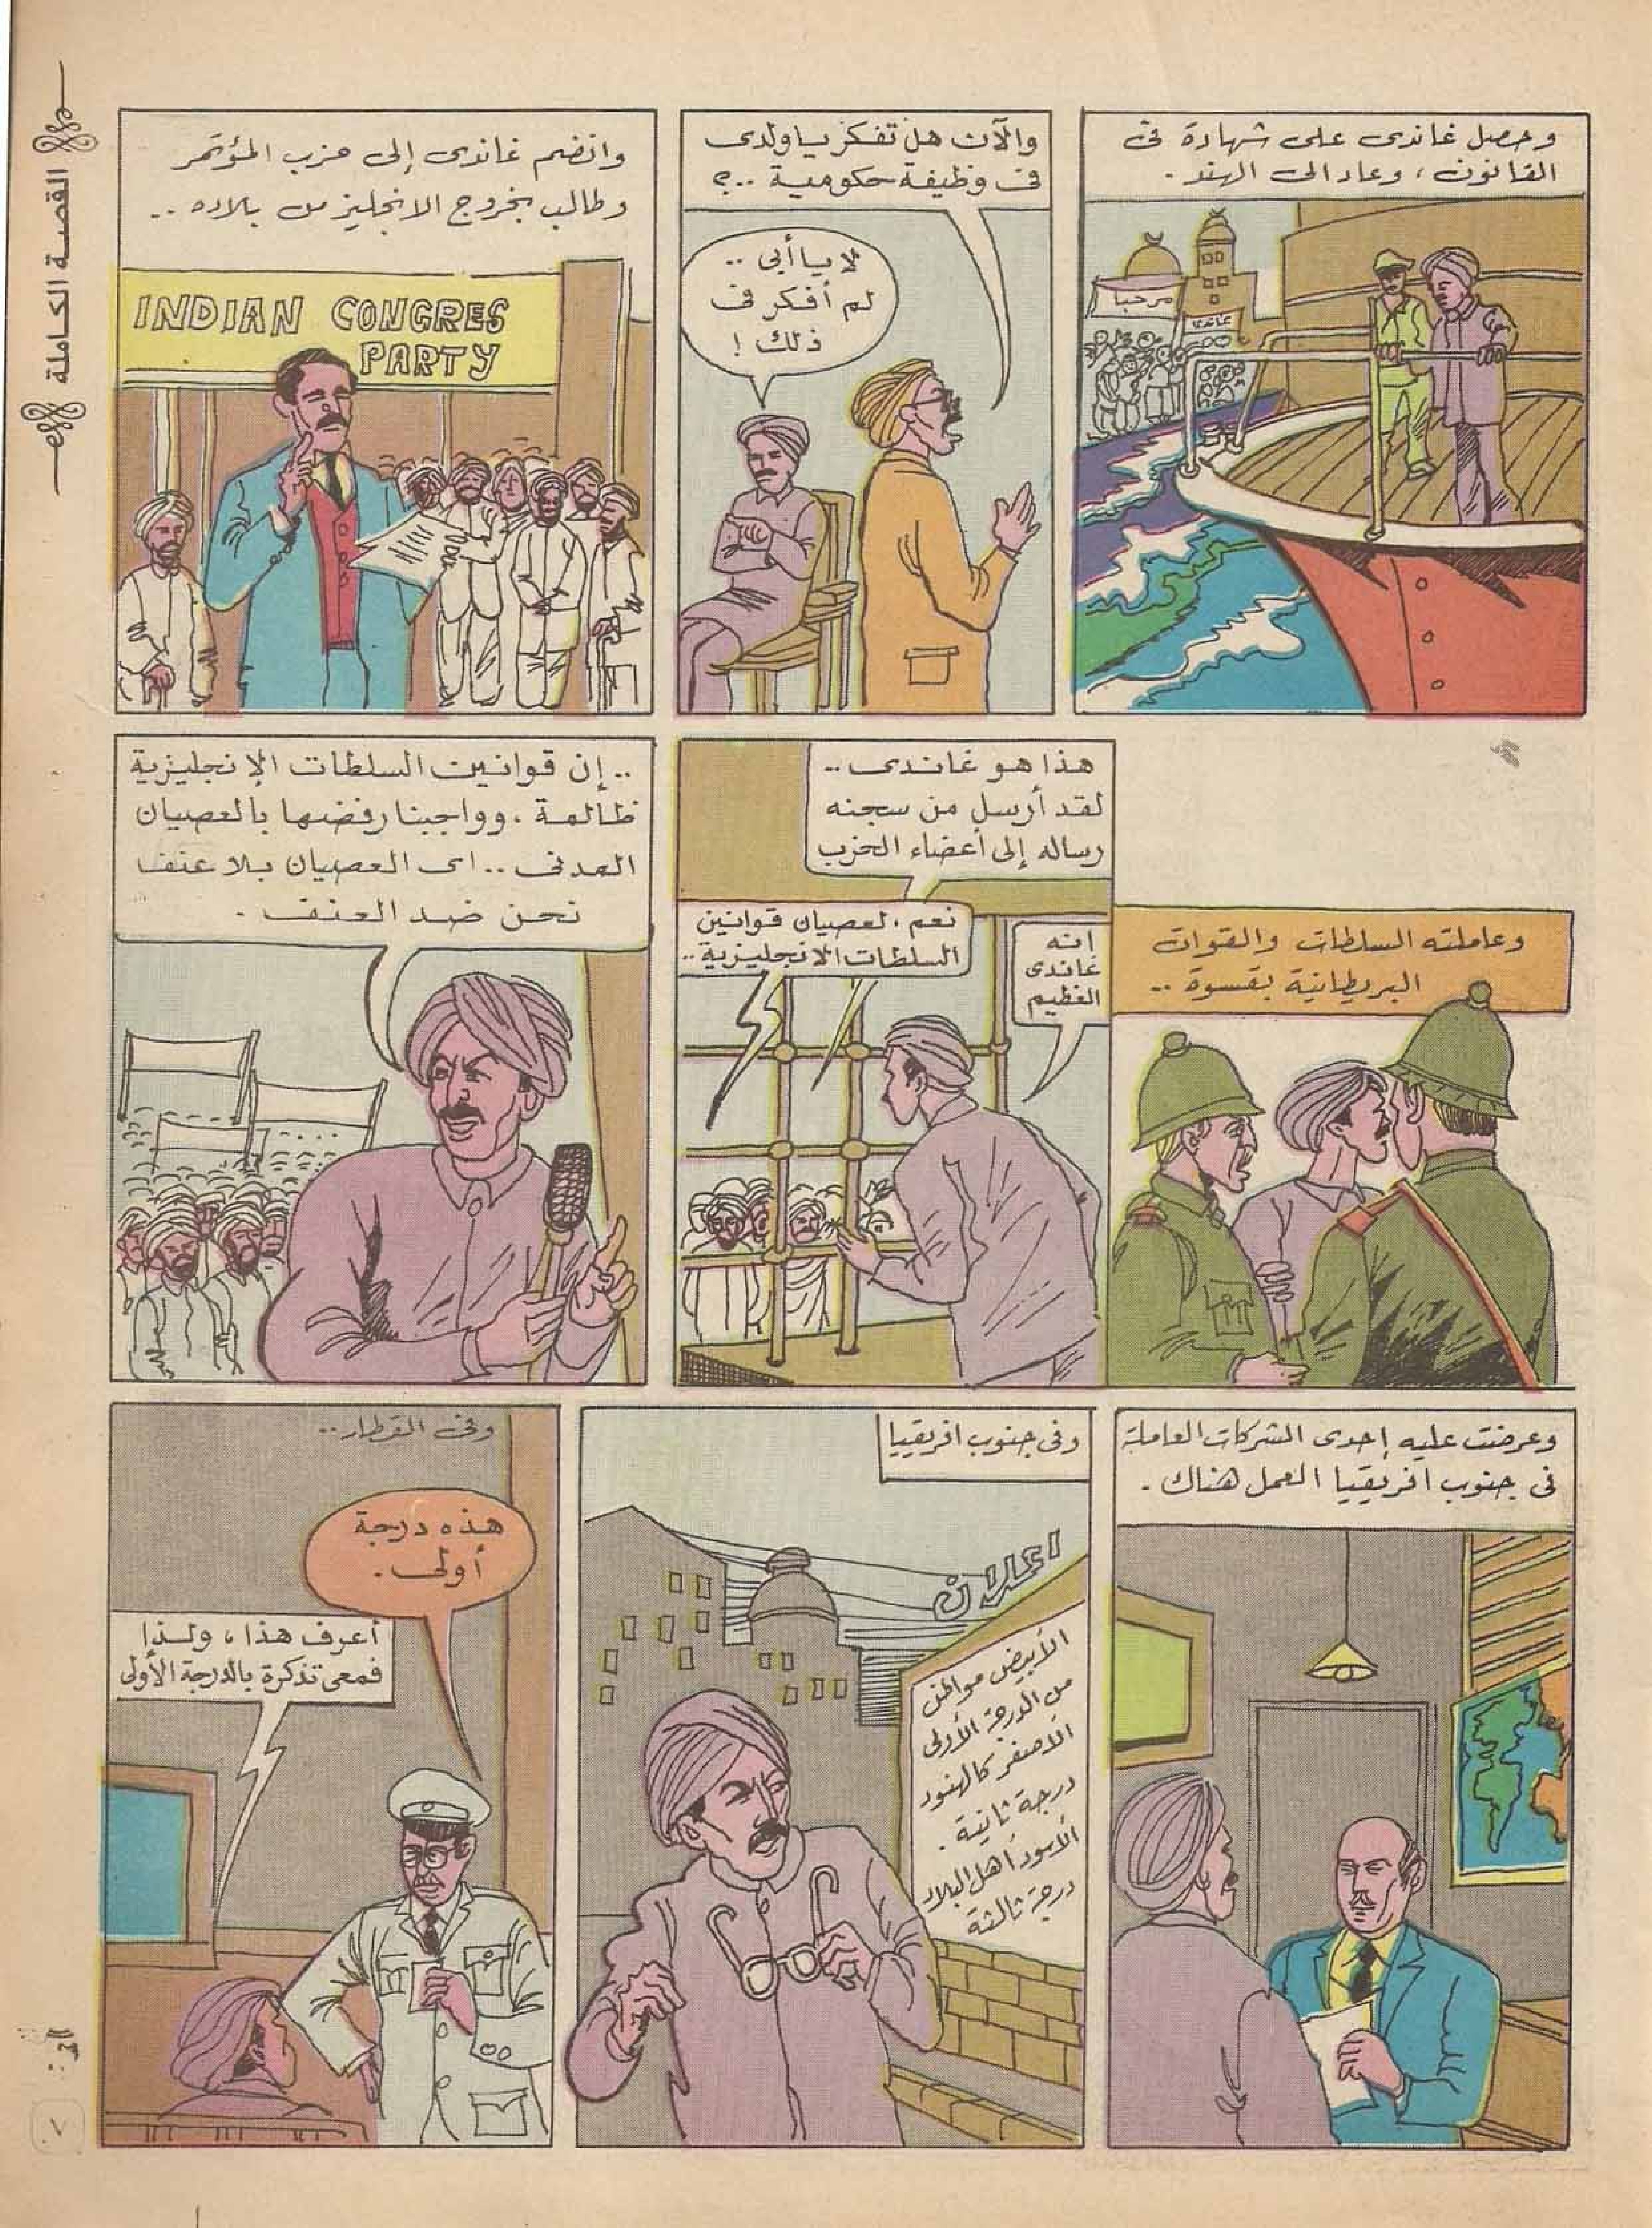 القصة الكاملة
وحصل غاندى على شهادة فى
القانون، وعاد الى الهند.
مرحبا
غاندى
والآن هل تفكر ياولدى
فى وظيفة حكومية ..؟
لا يا أبى ..
لم أفكر فى
ذلك !
وانضم غاندى إلى حزب المؤتمر
وطالب بخروج الانجليز من بلاده ..
INDIAN CONGRES
PARTY
وعاملته السلطات والقوات
البريطانية بقسوة ..
هذا هو غاندى ..
لقد أرسل من سجنه
رساله إلى أعضاء الحزب
إنه
غاندى
العظيم
نعم، لعصيان قوانين
السلطات الانجليزية ..
.. إن قوانين السلطات الإنجليزية
ظالمة، وواجبنا رفضها بالعصيان
المدنى .. اى العصيان بلا عنف
نحن ضد العنف .
وعرضت عليه إحدى الشركات العاملة
فى جنوب افريقيا العمل هناك .
وفى جنوب افريقيا
اعلان
الأبيض مواطن
من الدرجة الأولى
الأصفر كالهنود
درجة ثانية .
الأسود أهل البلاد
درجة ثالثة
وفى القطار ..
هذه درجة
أولى .
أعرف هذا، ولذا
فمعى تذكرة بالدرجة الأولى
٧